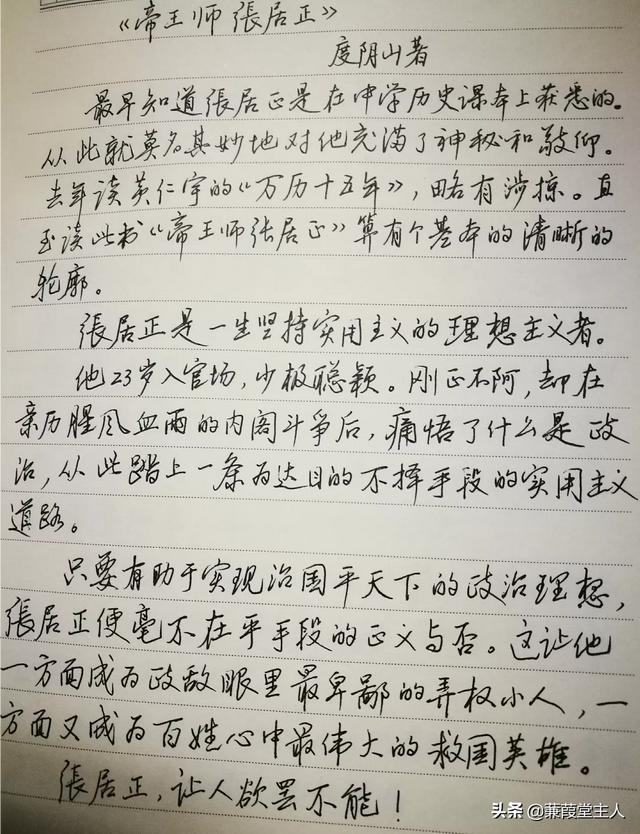 《帝王师張居正》
度阴山著
最早知道張居正是在中学历史课本上获悉的。
从此就莫名其妙地对他充满了神秘和敬仰。
去年读黄仁宇的《万历十五年》，略有涉掠。直
至读此书《帝王师张居正》算有个基本的清晰的
轮廓。
張居正是一生坚持实用主义的理想主义者。
他23岁入官场，少极聪颖。刚正不阿，却在
亲历腥风血雨的内阁斗争后，痛悟了什么是政
治，从此踏上一条为达目的不择手段的实用主义
道路。
只要有助于实现治国平天下的政治理想，
張居正便毫不在乎手段的正义与否。这让他
一方面成为政敌眼里最卑鄙的弄权小人，一
方面又成为百姓心中最伟大的救国英雄。
張居正，让人欲罢不能！
头条 @蒹葭堂主人